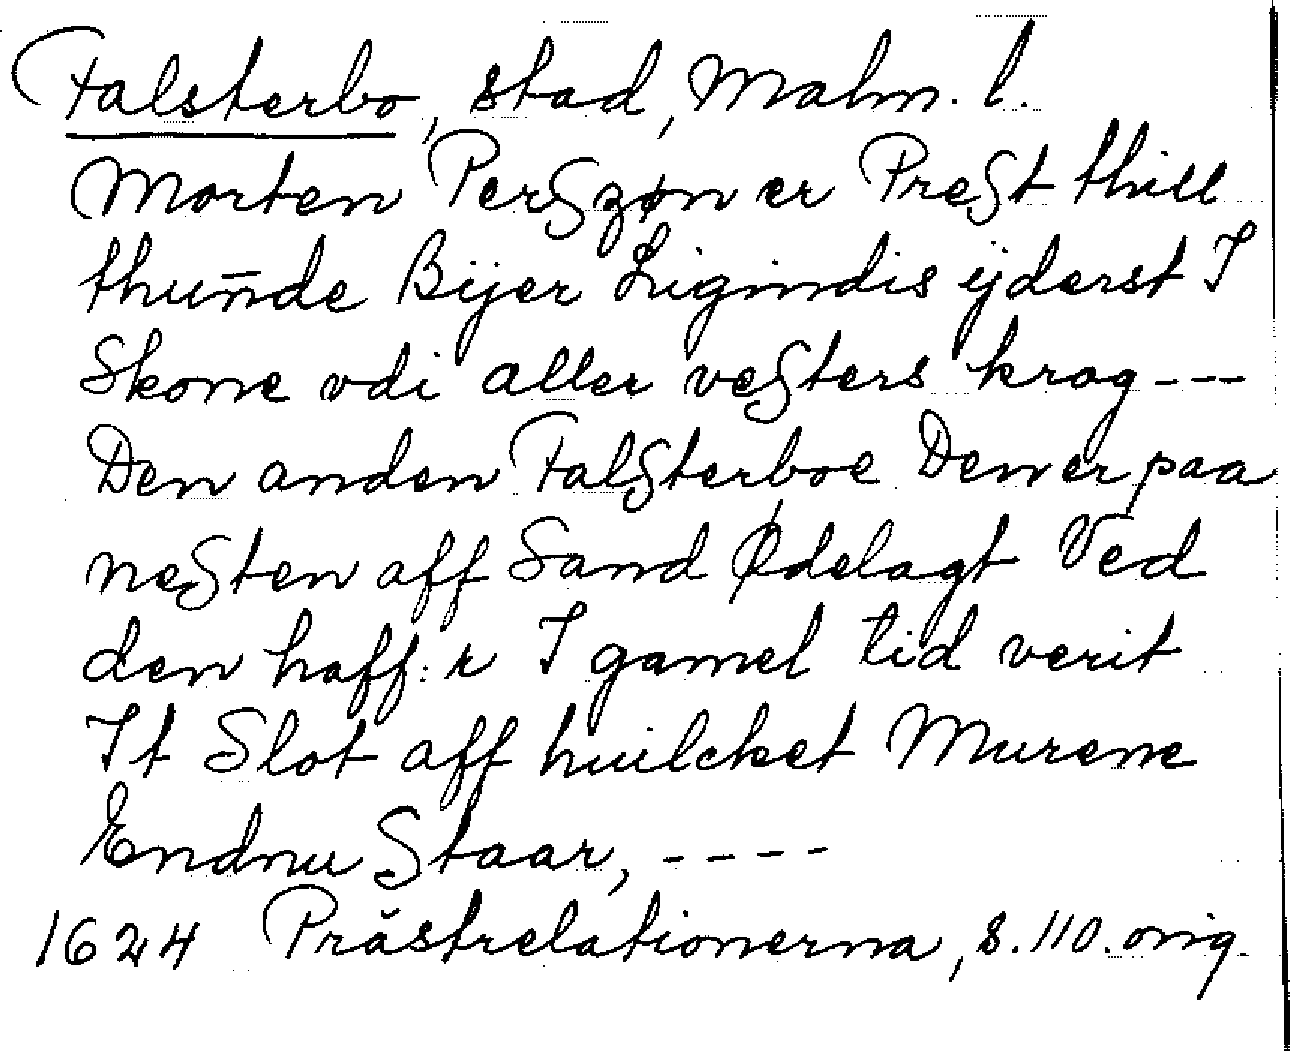 Falsterbo, stad, Malm. l.
Morten Perszøn er Prest thill
thun̄de Bijer Ligindis ijderst I
Skone vdi aller vesters krog ---
Den anden Falsterboe Den er paa
nesten aff Sand Ødelagt Ved
den haff:r I gamel tid verit
It Slot aff huilcket Murene
Endnu Staar, ----
1624 Prästrelationerna, s. 110. orig.